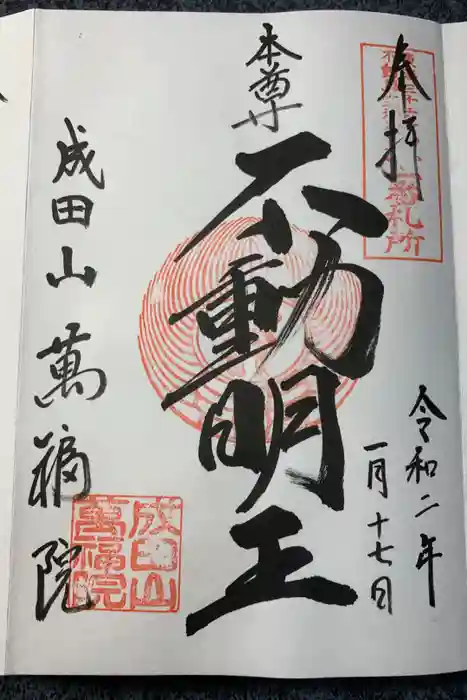 奉拝
令和二年
一月十七日
本尊
不動明王
成田山萬福院
成田山
萬福院
札所